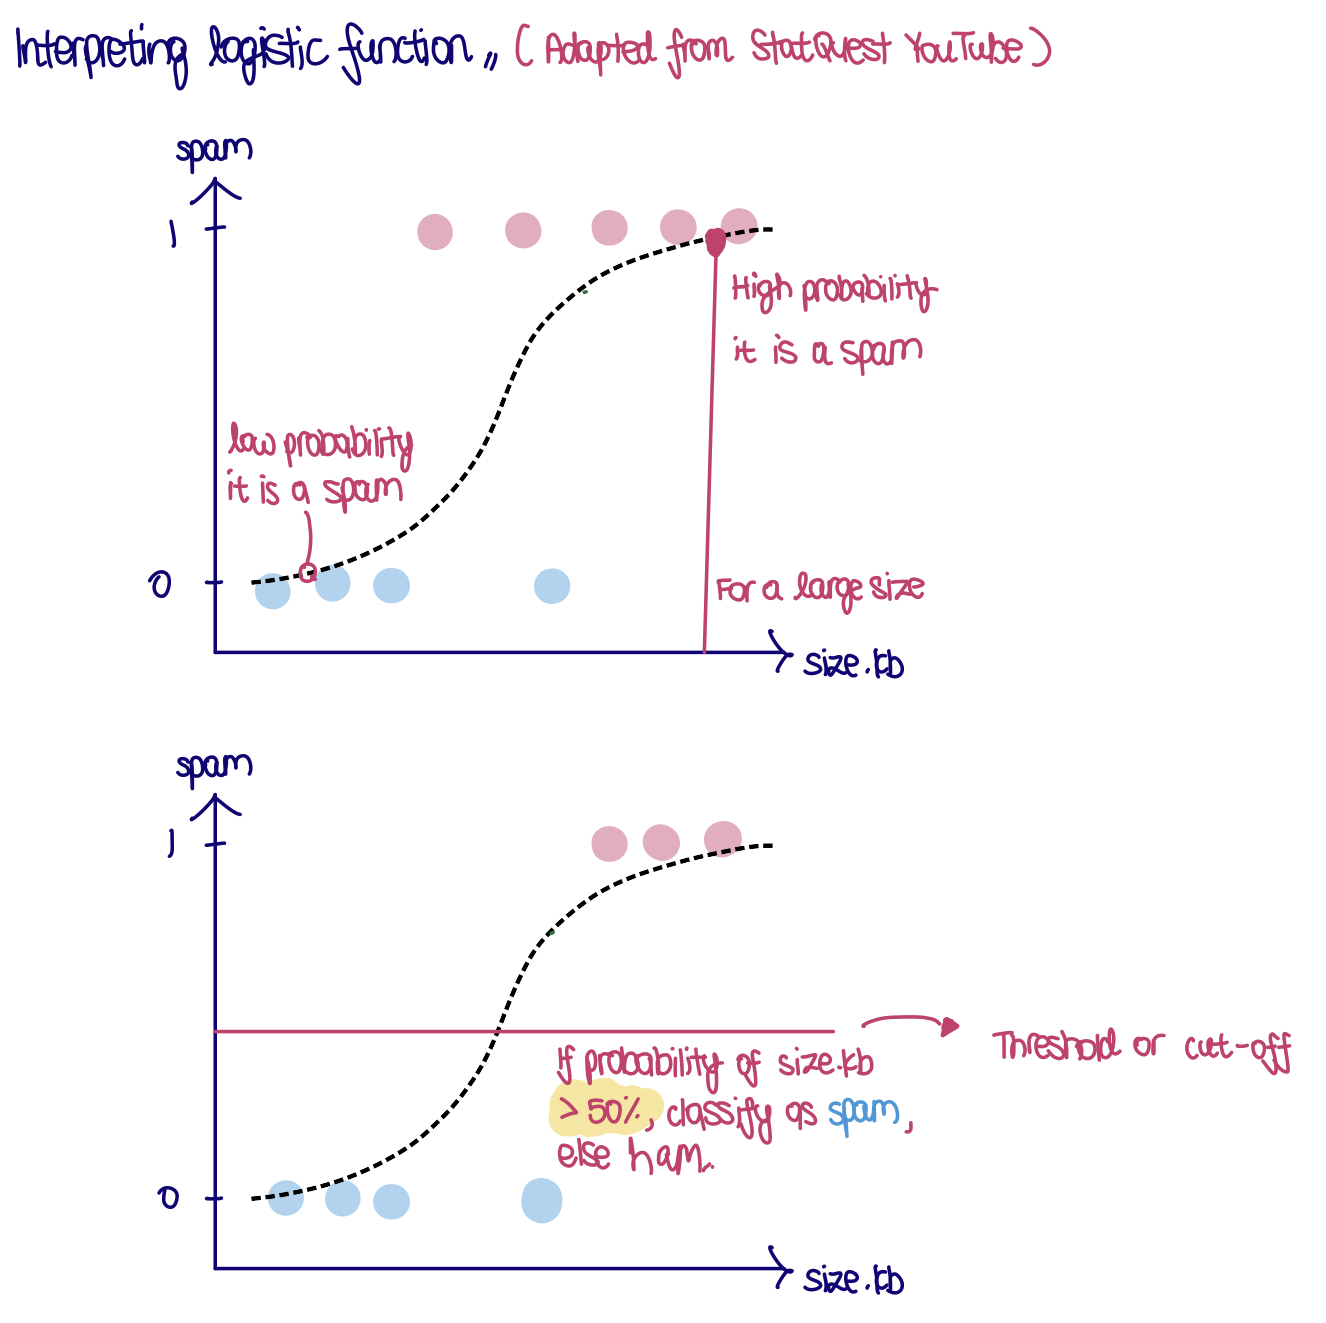 Interpreting logistic function,, (Adapted from StatQuest YouTube)
spam
1
High probability
it is a spam
low probability
it is a spam
0
For a large size
size.kb
spam
1
Threshold or cut-off
If probability of size.kb
> 50%, classify as spam,
else ham.
0
size.kb